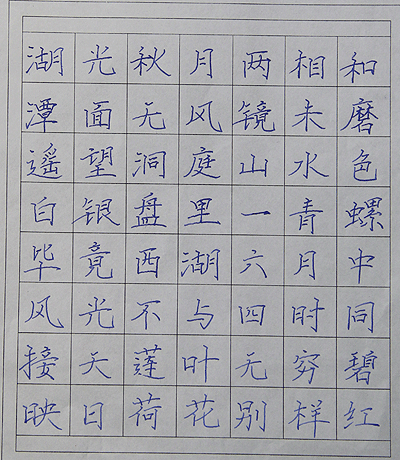 湖光秋月两相和
潭面无风镜未磨
遥望洞庭山水色
白银盘里一青螺
毕竟西湖六月中
风光不与四时同
接天莲叶无穷碧
映日荷花别样红